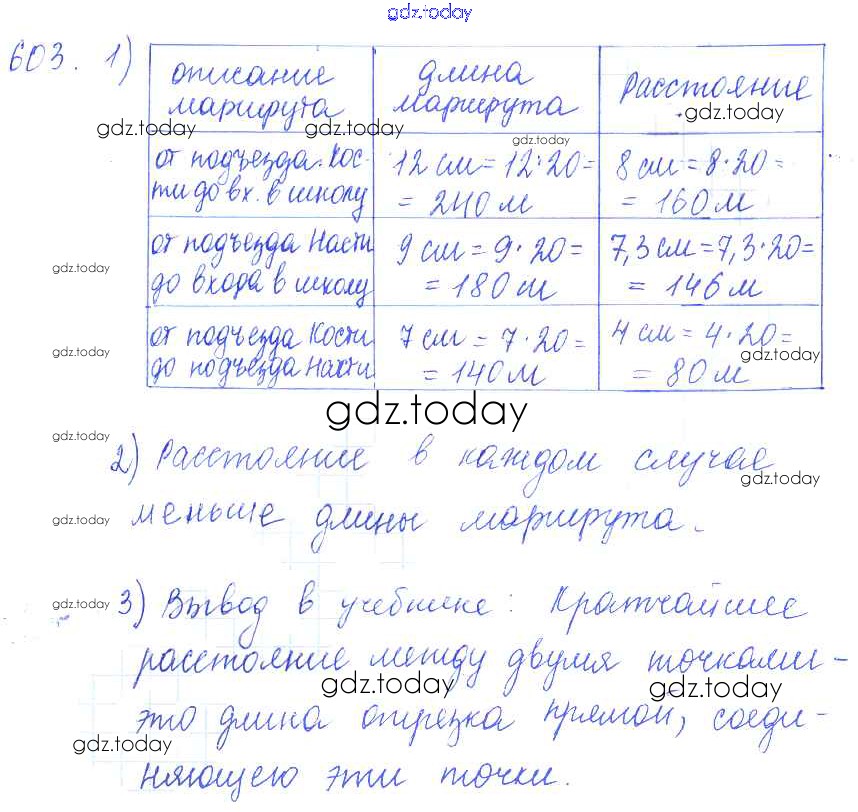 gdz.today
603. 1)
описание маршрута | длина маршрута | Расстояние
gdz.today gdz.today gdz.today gdz.today
от подъезда Кос-
ти до вх. в школу | 12 см = 12·20 =
= 240 м | 8 см = 8·20 =
= 160 м
от подъезда Насти
до входа в школу | 9 см = 9·20 =
= 180 м | 7,3 см = 7,3·20 =
= 146 м
gdz.today
от подъезда Кости
до подъезда Насти | 7 см = 7·20 =
= 140 м | 4 см = 4·20 =
= 80 м
gdz.today gdz.today
gdz.today
gdz.today
2) Расстояние в каждом случае
gdz.today
меньше длины маршрута.
gdz.today
gdz.today
3) Вывод в учебнике: Кратчайшее
расстояние между двумя точками -
gdz.today gdz.today
это длина отрезка прямой, соеди-
gdz.today
няющего эти точки.